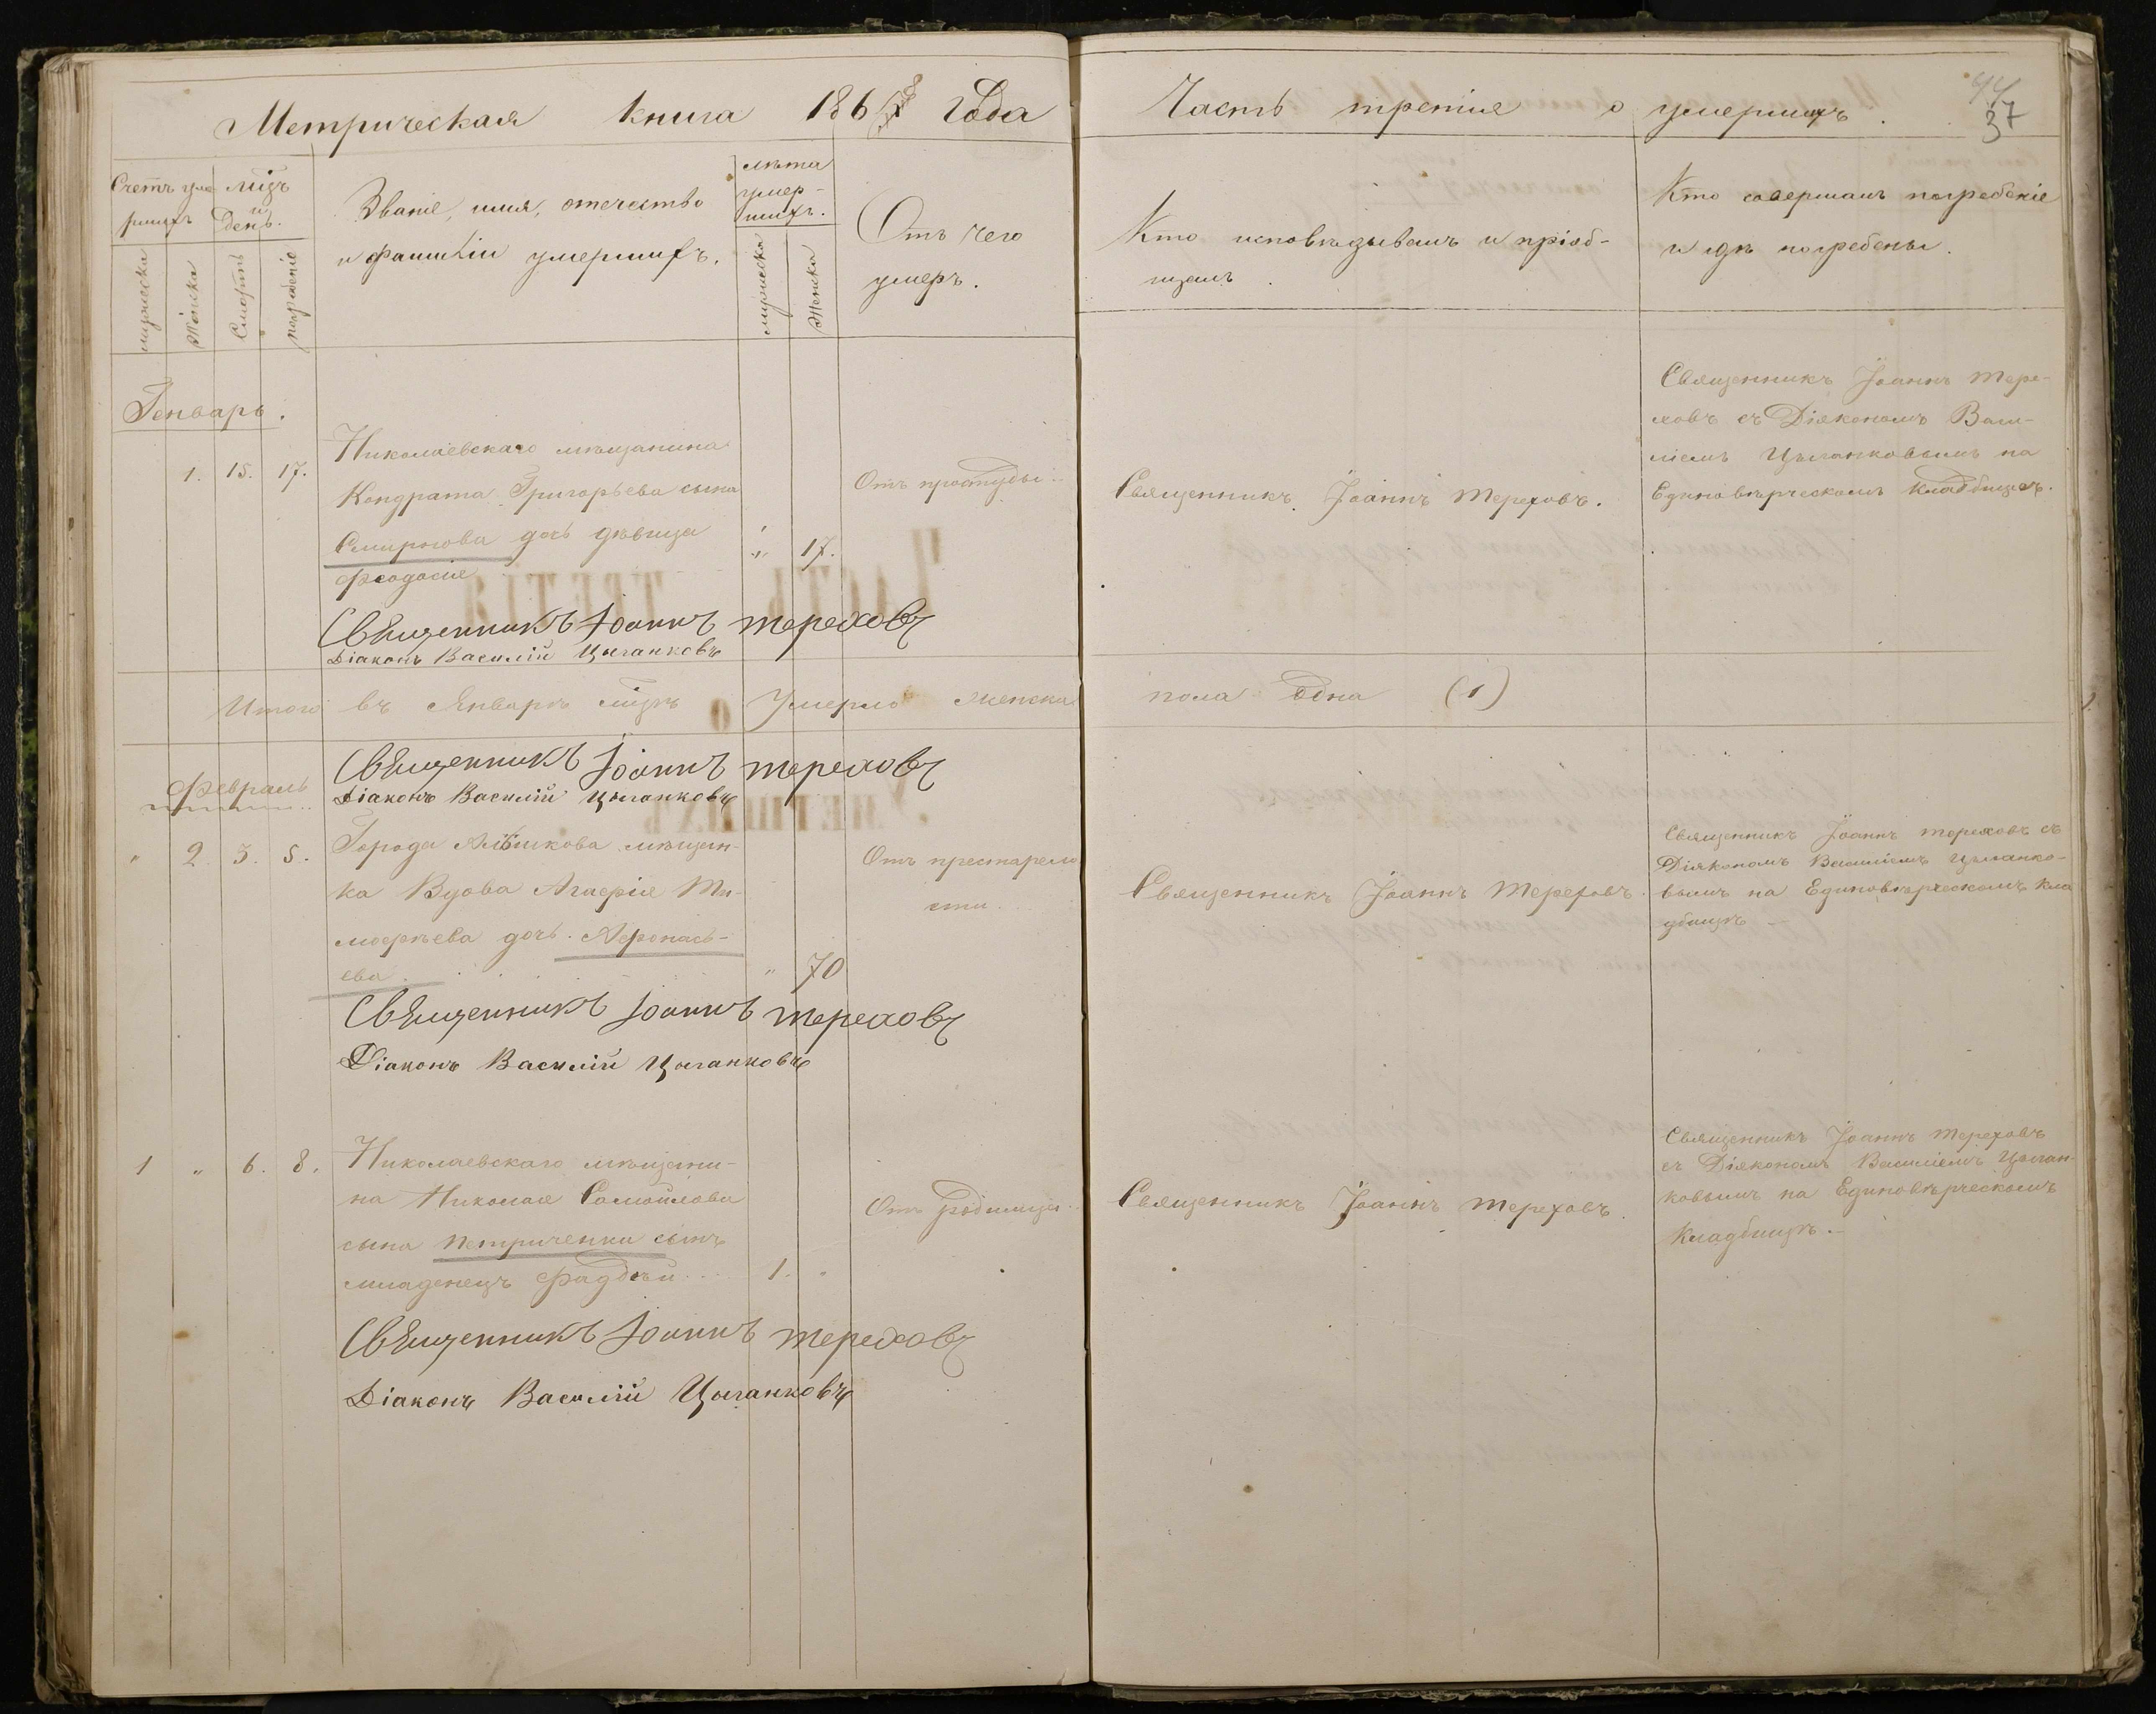 Метрическая книга 1868 года
Часть третия о умершихъ.
37
Счетъ уме
ршихъ
мцъ
и
день.
Званіе, имя, отечество
и фамиліи умершихъ.
лѣта
умер-
шихъ.
Отъ чего
умеръ.
Кто исповѣдывалъ и пріоб-
щалъ.
Кто совершалъ погребеніе
и гдѣ погребены.
мужеска
женска
Смерть
погребеніе
мужеска
женска
Генварь.
1. 15. 17.
Николаевскаго мѣщанина
Кондрата Григорьева сына
Смирнова дочь дѣвица
Феодосія
" 17.
Отъ простуды
Священникъ Іоаннъ Тереховъ.
Священникъ Іоаннъ Тере-
ховъ съ Діякономъ Васи-
ліемъ Цыганковымъ на
Единовѣрческомъ кладбищѣ.
Священникъ Іоаннъ Тереховъ
Діаконъ Василій Цыганковъ
Итого въ Январѣ мцѣ Умерло женска
пола одна (1)
Священникъ Іоаннъ Тереховъ
Діаконъ Василій Цыганковъ
Февраль
" 2. 3. 5.
Города Алѣшкова мѣщан-
ка Вдова Агафія Ти-
мофѣева дочь Афонась-
ева
" 70
Отъ престарело
сти.
Священникъ Іоаннъ Тереховъ.
Священникъ Іоаннъ Тереховъ съ
Діякономъ Василіемъ Цыганко-
вымъ на Единовѣрческомъ кла
дбищѣ
Священникъ Іоаннъ Тереховъ
Діаконъ Василій Цыганковъ
1 " 6. 8.
Николаевскаго мѣщани-
на Николая Самойлова
сына Петриченки сынъ
младенецъ Фаддѣй
1. "
Отъ родимца
Священникъ Іоаннъ Тереховъ.
Священникъ Іоаннъ Тереховъ
съ Діякономъ Василіемъ Цыган-
ковымъ на Единовѣрческомъ
Кладбищѣ.
Священникъ Іоаннъ Тереховъ
Діаконъ Василій Цыганковъ